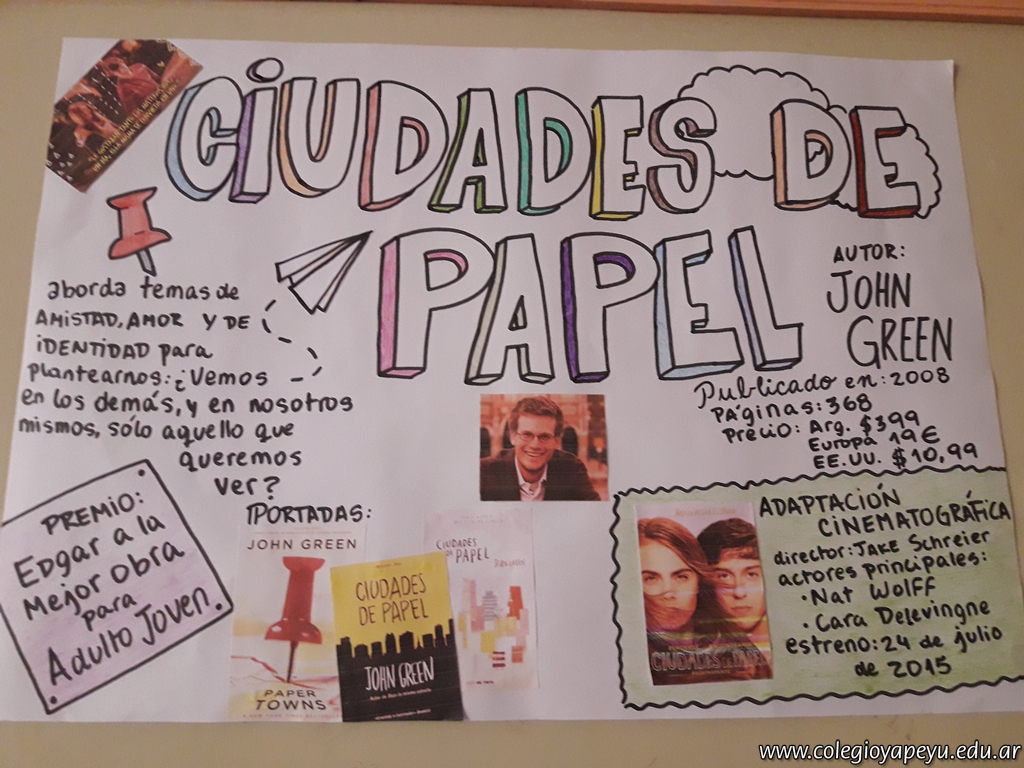 CIUDADES DE
PAPEL
AUTOR:
JOHN
GREEN
Publicado en: 2008
PÁGINAS: 368
Precio: Arg. $399
Europa 19€
EE.UU. $10,99
aborda temas de
AMISTAD, AMOR Y DE
iDENTIDAD para
plantearnos: ¿Vemos
en los demás, y en nosotros
mismos, sólo aquello que
queremos
ver?
PREMIO:
Edgar a la
Mejor Obra
para
Adulto Joven.
PORTADAS:
JOHN GREEN
PAPER
TOWNS
CIUDADES
DE PAPEL
JOHN GREEN
CIUDADES
DE PAPEL
JOHN GREEN
ADAPTACIÓN
CINEMATOGRÁFICA
director: Jake Schreier
actores principales:
• Nat Wolff
• Cara Delevingne
estreno: 24 de julio
de 2015
CIUDADES DE PAPEL
www.colegioyapeyu.edu.ar